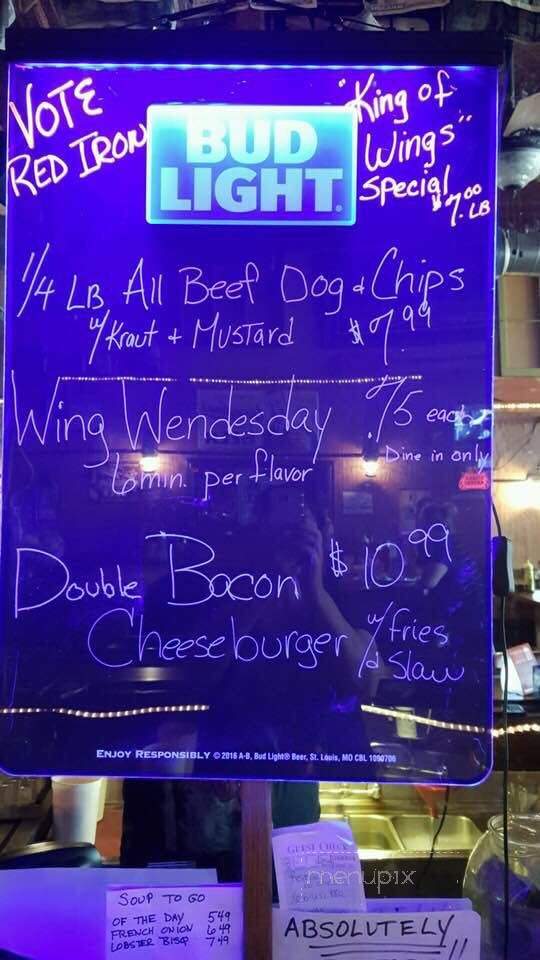 VOTE
RED IRON
BUD
LIGHT
"King of
Wings"
Special
$7.00 LB
1/4 LB All Beef Dog & Chips
w/ Kraut + Mustard $7.99
Wing Wendesday .75 each
Dine in only
6 min. per flavor
Double Bacon $10.99
Cheeseburger w/ fries
& Slaw
ENJOY RESPONSIBLY © 2016 A-B, Bud Light® Beer, St. Louis, MO CBL 1090706
GUEST CHECK
menupix
SOUP TO GO
OF THE DAY 549
FRENCH ONION 649
LOBSTER BISQ 749
ABSOLUTELY